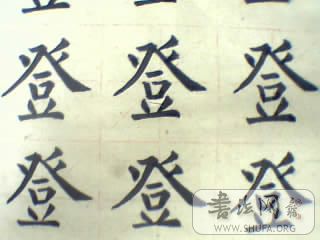 登 登 登
登 登 登
书法网
WWW.SHUFA.ORG